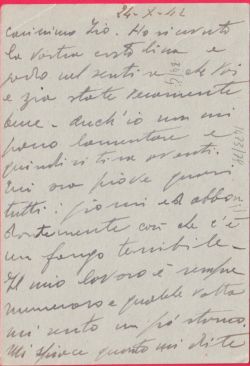 24-X-42
carissimo Zio. Ho ricevuto
la vostra cartolina e
godo nel sentire che voi
e zia state veramente
bene - Anch'io non mi
posso lamentare e
quindi si tira avanti.
Qui ora piove quasi
tutti i giorni ed abbon
dantemente così che c'è
un fango terribile -
Il mio lavoro è sempre
numeroso e qualche volta
mi sento un pó stanco.
Mi spiace quanto mi dite